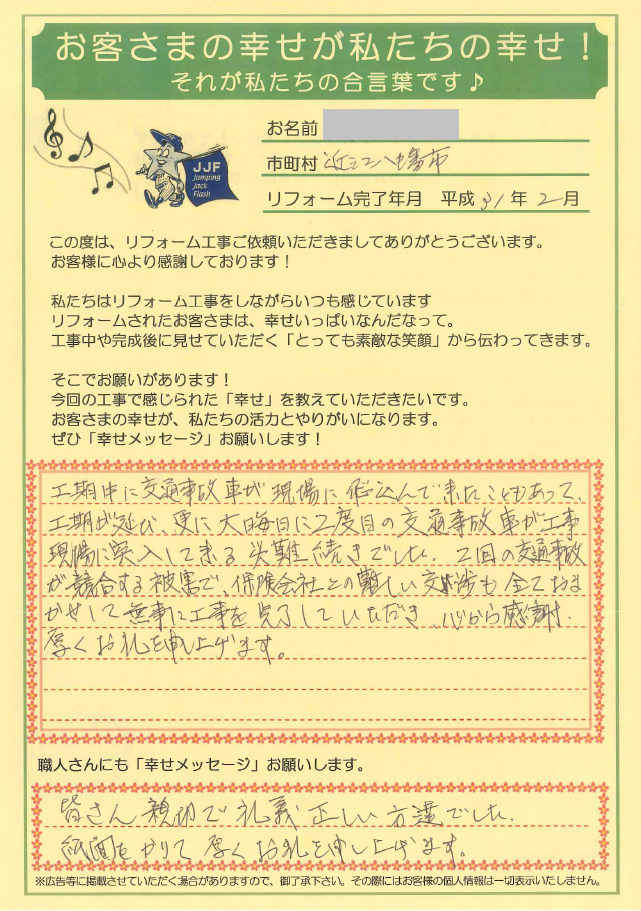 お客さまの幸せが私たちの幸せ！
それが私たちの合言葉です♪
お名前
JJF
Jumping
Jack
Flash
市町村 近江八幡市
リフォーム完了年月 平成 31 年 2 月
この度は、リフォーム工事ご依頼いただきましてありがとうございます。
お客様に心より感謝しております！
私たちはリフォーム工事をしながらいつも感じています
リフォームされたお客さまは、幸せいっぱいなんだなって。
工事中や完成後に見せていただく「とっても素敵な笑顔」から伝わってきます。
そこでお願いがあります！
今回の工事で感じられた「幸せ」を教えていただきたいです。
お客さまの幸せが、私たちの活力とやりがいになります。
ぜひ「幸せメッセージ」お願いします！
工期中に交通事故車が現場に飛込んで来たこともあって、
工期が延び、更に大晦日に2度目の交通事故車が工事
現場に突入して来る災難続きでした。2回の交通事故
が競合する被害で、保険会社との難しい交渉も全ておま
かせして無事に工事を完了していただき、心から感謝、
厚くお礼を申し上げます。
職人さんにも「幸せメッセージ」お願いします。
皆さん親切で礼義正しい方達でした。
紙面をかりて厚くお礼を申し上げます。
※広告等に掲載させていただく場合がありますので、御了承下さい。その際にはお客様の個人情報は一切表示いたしません。